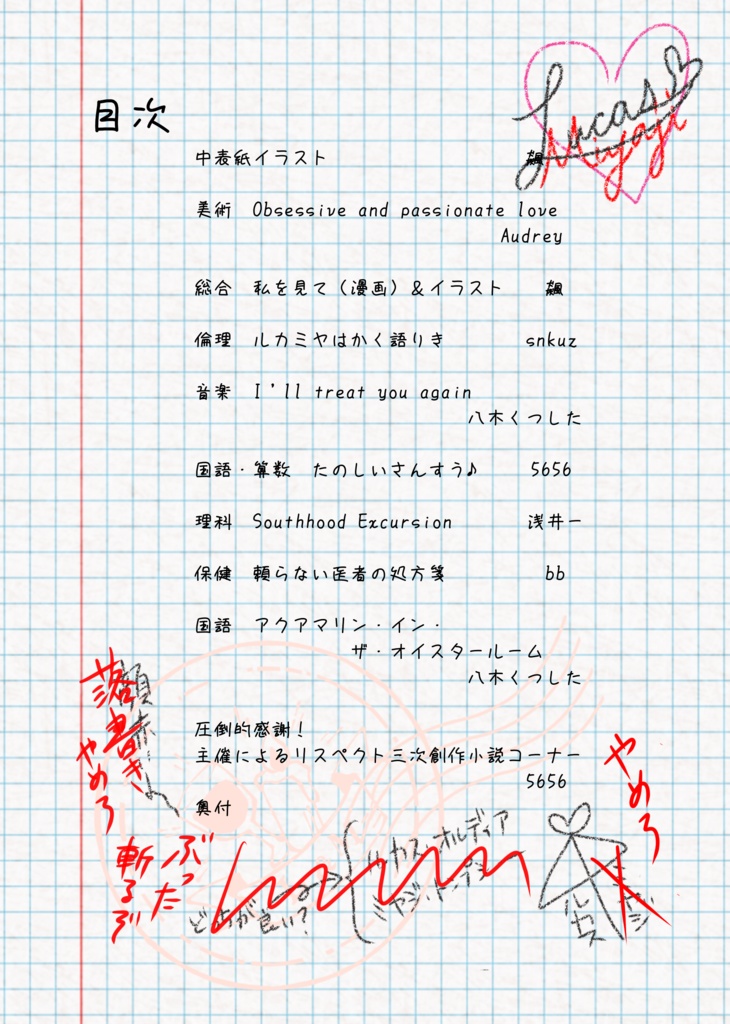 Lucas
Miyaji
目次
中表紙イラスト 飆
美術 Obsessive and passionate love
Audrey
総合 私を見て（漫画）＆イラスト 飆
倫理 ルカミヤはかく語りき snkuz
音楽 I'll treat you again
八木くつした
国語・算数 たのしいさんすう♪ 5656
理科 Southhood Excursion 浅井一
保健 頼らない医者の処方箋 bb
国語 アクアマリン・イン・
ザ・オイスタールーム
八木くつした
圧倒的感謝！
主催によるリスペクト三次創作小説コーナー
5656
奥付
落書き
やめろ
ぶった
斬るぞ
どっちが良い？
ルカス・オルディア
ミヤジ・
やめろ
ルカス
ミヤジ